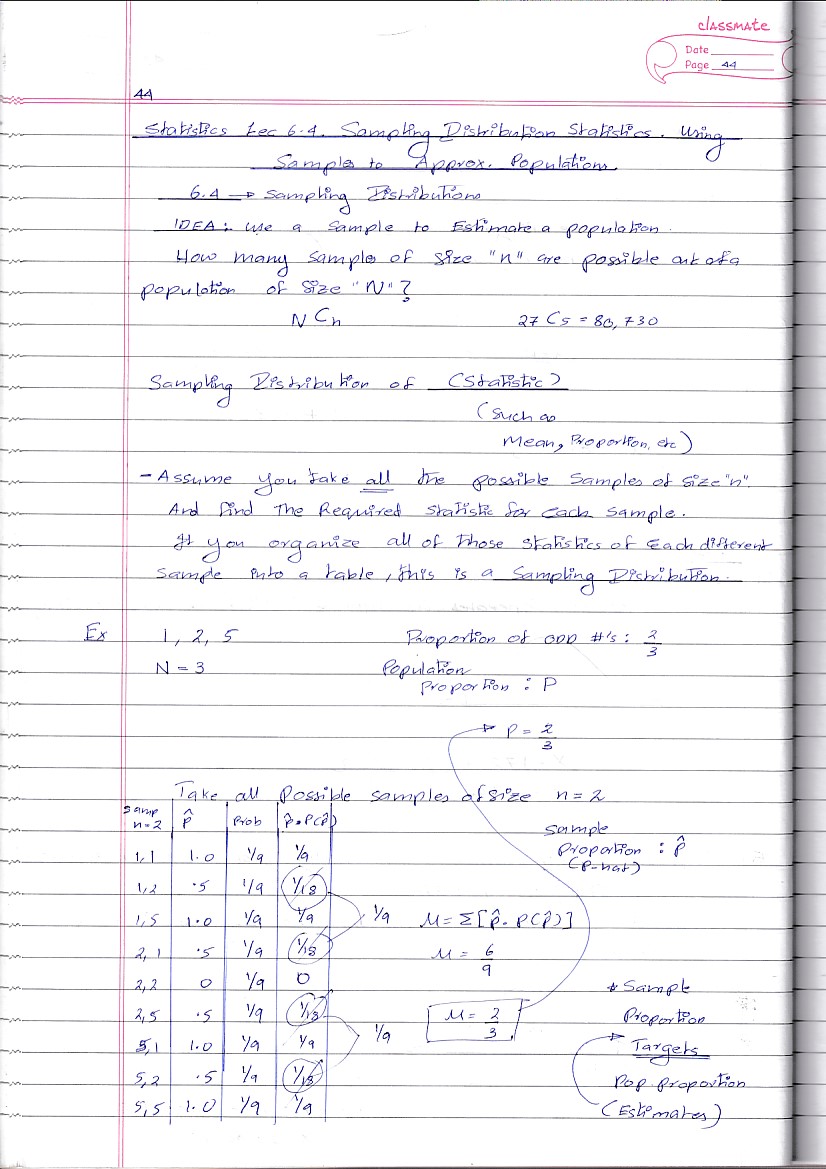 classmate
Date
Page 44
44
Statistics Lec 6.4. Sampling Distribution Statistics. Using
Samples to Approx. Populations
6.4 → Sampling Distributions
IDEA: use a sample to Estimate a population.
How many samples of size "n" are possible out of a
population of size "N"?
N C n 27 C5 = 80,730
Sampling Distribution of (Statistic)
(such as
Mean, Proportion, etc)
- Assume you take all the possible samples of size "n".
And find The Required statistic for each sample.
If you organize all of those statistics of Each different
sample into a table, this is a Sampling Distribution.
Ex 1, 2, 5 Proportion of ODD #'s : 2/3
N = 3 Population
Proportion : P
P = 2/3
Take all Possible samples of size n = 2
Samp n=2 | p̂ | Prob | p̂ • P(p̂)
sample
Proportion : p̂
(p-hat)
1,1 | 1.0 | 1/9 | 1/9
1,2 | .5 | 1/9 | 1/18
1,5 | 1.0 | 1/9 | 1/9 1/9 μ = Σ[p̂ • P(p̂)]
2,1 | .5 | 1/9 | 1/18 μ = 6/9
2,2 | 0 | 1/9 | 0 * Sample
2,5 | .5 | 1/9 | 1/18 μ = 2/3 Proportion
5,1 | 1.0 | 1/9 | 1/9 1/9 Targets
5,2 | .5 | 1/9 | 1/18 Pop proportion
5,5 | 1.0 | 1/9 | 1/9 (Estimates)